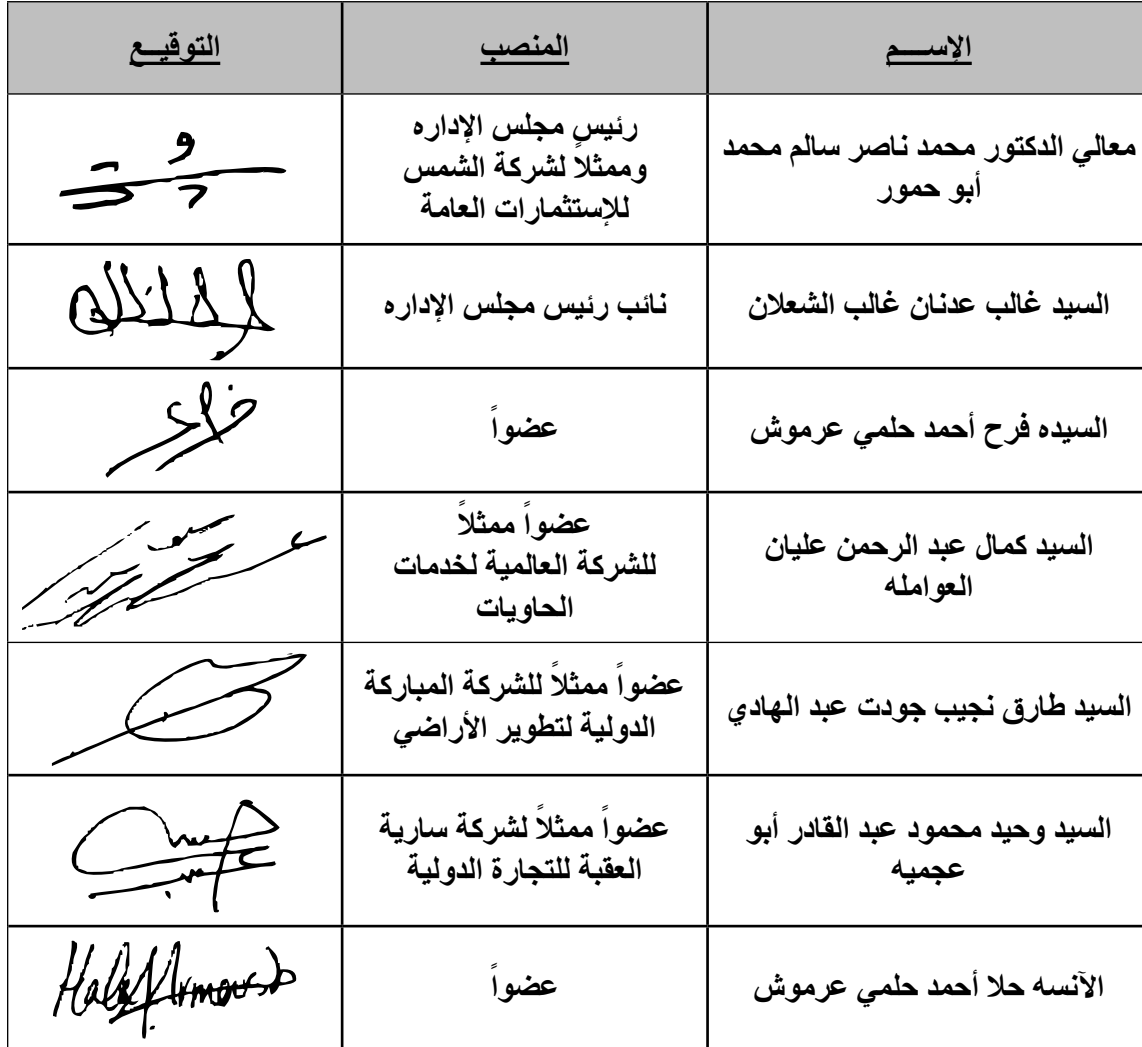 الإســـم
المنصب
التوقيـع
معالي الدكتور محمد ناصر سالم محمد
أبو حمور
رئيس مجلس الإداره
وممثلاً لشركة الشمس
للإستثمارات العامة
السيد غالب عدنان غالب الشعلان
نائب رئيس مجلس الإداره
السيده فرح أحمد حلمي عرموش
عضواً
السيد كمال عبد الرحمن عليان
العوامله
عضواً ممثلاً
للشركة العالمية لخدمات
الحاويات
السيد طارق نجيب جودت عبد الهادي
عضواً ممثلاً للشركة المباركة
الدولية لتطوير الأراضي
السيد وحيد محمود عبد القادر أبو
عجميه
عضواً ممثلاً لشركة سارية
العقبة للتجارة الدولية
الآنسه حلا أحمد حلمي عرموش
عضواً